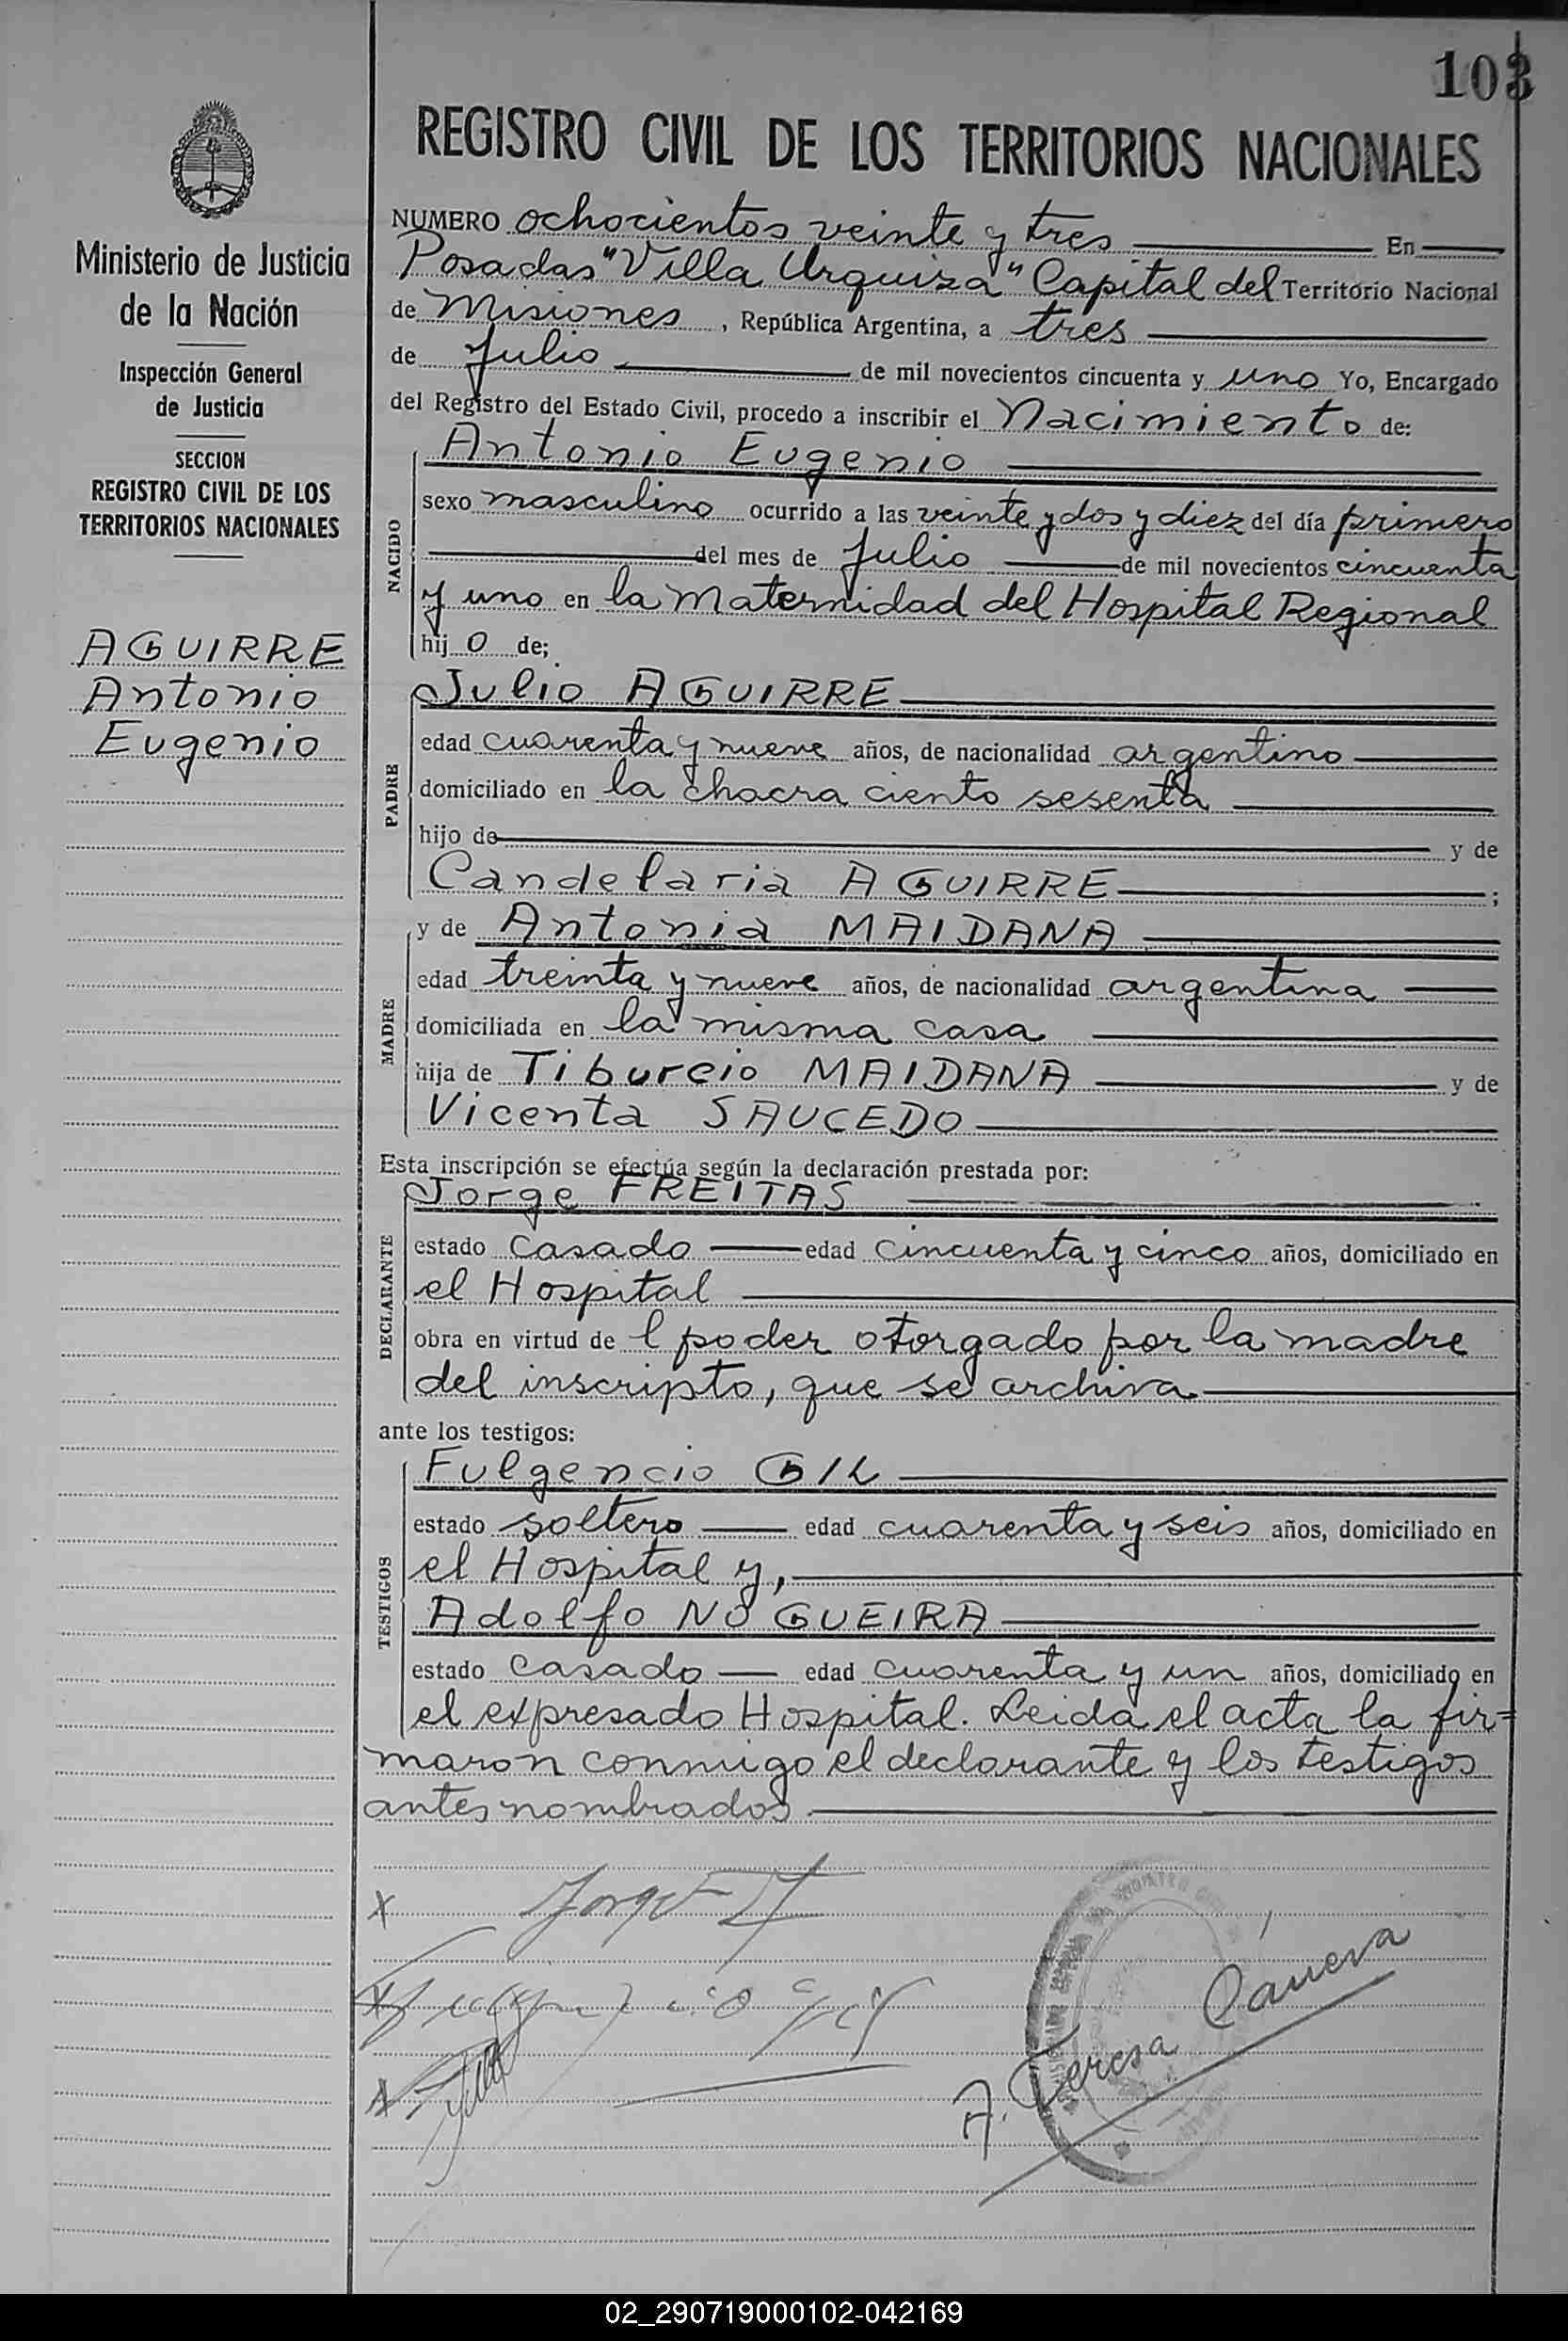 103
REGISTRO CIVIL DE LOS TERRITORIOS NACIONALES
Ministerio de Justicia
de la Nación
Inspección General
de Justicia
SECCION
REGISTRO CIVIL DE LOS
TERRITORIOS NACIONALES
AGUIRRE
Antonio
Eugenio
NUMERO ochocientos veinte y tres En
Posadas "Villa Urquiza" Capital del Territorio Nacional
de Misiones, República Argentina, a tres
de Julio de mil novecientos cincuenta y uno Yo, Encargado
del Registro del Estado Civil, procedo a inscribir el Nacimiento de:
NACIDO
Antonio Eugenio
sexo masculino ocurrido a las veinte y dos y diez del día primero
del mes de Julio de mil novecientos cincuenta
y uno en la Maternidad del Hospital Regional
hijo de;
PADRE
Julio AGUIRRE
edad cuarenta y nueve años, de nacionalidad argentino
domiciliado en la chacra ciento sesenta
hijo de y de
Candelaria AGUIRRE ;
MADRE
y de Antonia MAIDANA
edad treinta y nueve años, de nacionalidad argentina
domiciliada en la misma casa
hija de Tiburcio MAIDANA y de
Vicenta SAUCEDO
Esta inscripción se efectúa según la declaración prestada por:
DECLARANTE
Jorge FREITAS
estado casado edad cincuenta y cinco años, domiciliado en
el Hospital
obra en virtud de l poder otorgado por la madre
del inscripto, que se archiva
ante los testigos:
TESTIGOS
Fulgencio GIL
estado soltero edad cuarenta y seis años, domiciliado en
el Hospital y,
Adolfo NOGUEIRA
estado casado edad cuarenta y un años, domiciliado en
el expresado Hospital. Leida el acta la fir=
maron conmigo el declarante y los testigos
antes nombrados.
x Jorge
x
x
A. Teresa Cáneva
02_290719000102-042169